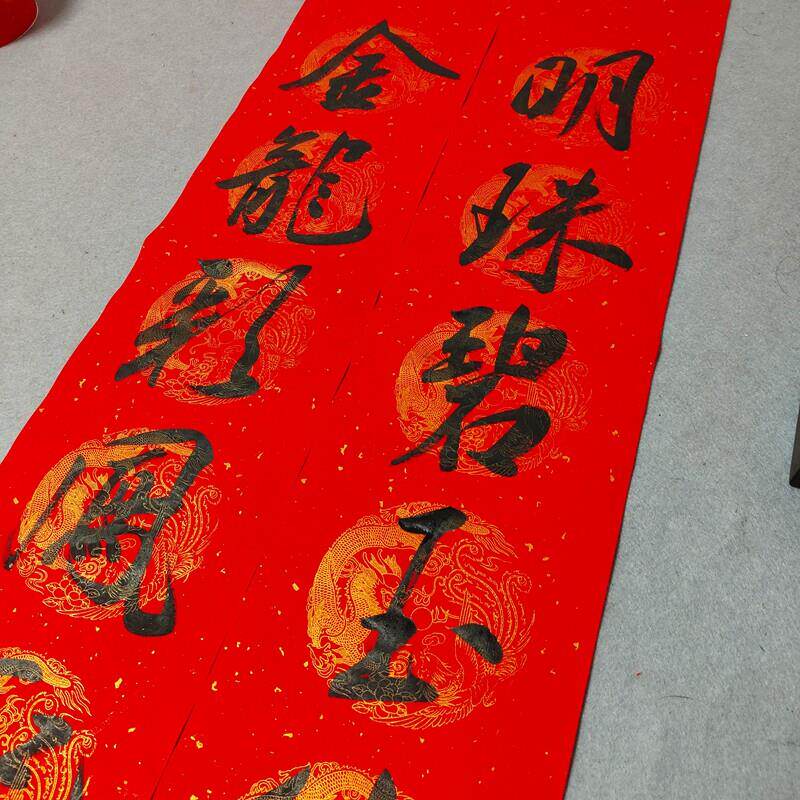 明珠碧玉
金龍彩鳳